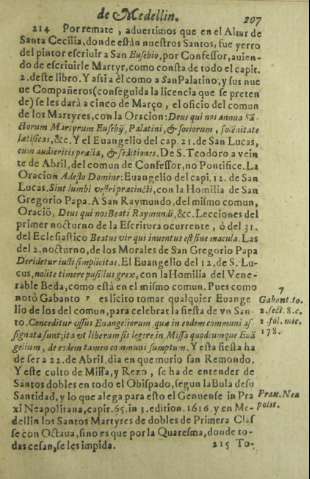 de Medellin. 207
214 Por remate, aduertimos que en el Altar de
Santa Cecilia, donde estàn nuestros Santos, fue yerro
del pintor escriuir a San Eusebio, por Confessor, auien-
do de escriuirle Martyr, como consta de todo el capit.
2. deste libro. Y assi a èl como a San Palatino, y sus nue
ue Compañeros (conseguida la licencia que se preten
de) se les darà a cinco de Março, el oficio del comun
de los Martyres, con la Oracion: Deus qui nos annua Sã-
ctorum Martyrum Eusebij, Palatini, & sociorum, solẽnitate
lætificas, &c. Y el Euangelio del cap. 21. de San Lucas,
cum audieritis prælia, & seditiones. De S. Teodoro a vein
te de Abril, del comun de Confessor, no Pontifice. La
Oracion Adesto Domine: Euangelio del capi. 12. de San
Lucas. Sint lumbi vestri præcincti, con la Homilia de San
Gregorio Papa. A San Raymundo, del mismo comun,
Oraciõ, Deus qui nos Beati Raymundi, &c. Lecciones del
primer nocturno de la Escritura ocurrente, ò del 31.
del Eclesiastico Beatus vir qui inuentus est sine macula. Las
del 2. nocturno, de los Morales de San Gregorio Papa
Deridetur iusti simplicitas. El Euangelio del 12. de S. Lu-
cas, nolite timere pusillus grex, con la Homilia del Vene-
rable Beda, como està en el mismo comun. Pues como
notò Gabanto 7 es licito tomar qualquier Euange
lio de los del comun, para celebrar la fiesta de vn San-
to. Conceditur vsus Euangeliorum quæ in eodem communi as-
signata sunt, ita vt liberum sit legere in Missa quodcumque Euã-
gelium, de eodem tamen communi sumptum. Y esta fiesta ha
de ser a 22. de Abril, dia en que murio san Remondo.
Y este culto de Missa, y Rezo, se ha de entender de
Santos dobles en todo el Obispado, segun la Bula de su
Santidad, y lo que alega para esto el Genuense in Pra
xi Neapolitana, capit. 65. in 1. edition. 1616. y en Me-
dellin los Santos Martyres de dobles de Primera Clas
se con Octaua, sino es por la Quaresma, donde to-
das cesan, se les impida. 215 To-
7
Gabant. to.
2. sect. 8. c.
2. fol. mic.
178.
Prax. Nea
polit.